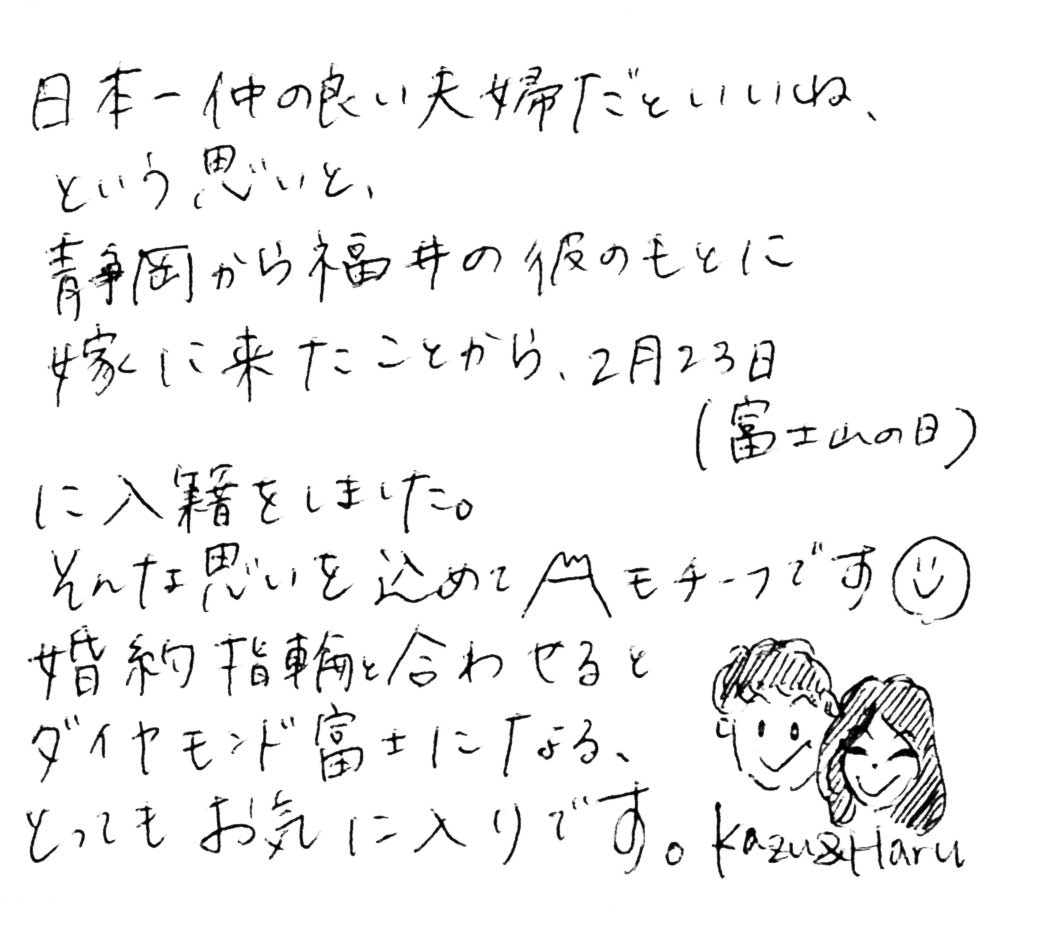 日本一仲の良い夫婦だといいね、
という思いと、
静岡から福井の彼のもとに
嫁に来たことから、2月23日
(富士山の日)
に入籍をしました。
そんな思いを込めてモチーフです
婚約指輪と合わせると
ダイヤモンド富士になる、
とってもお気に入りです。
Kazu&Haru